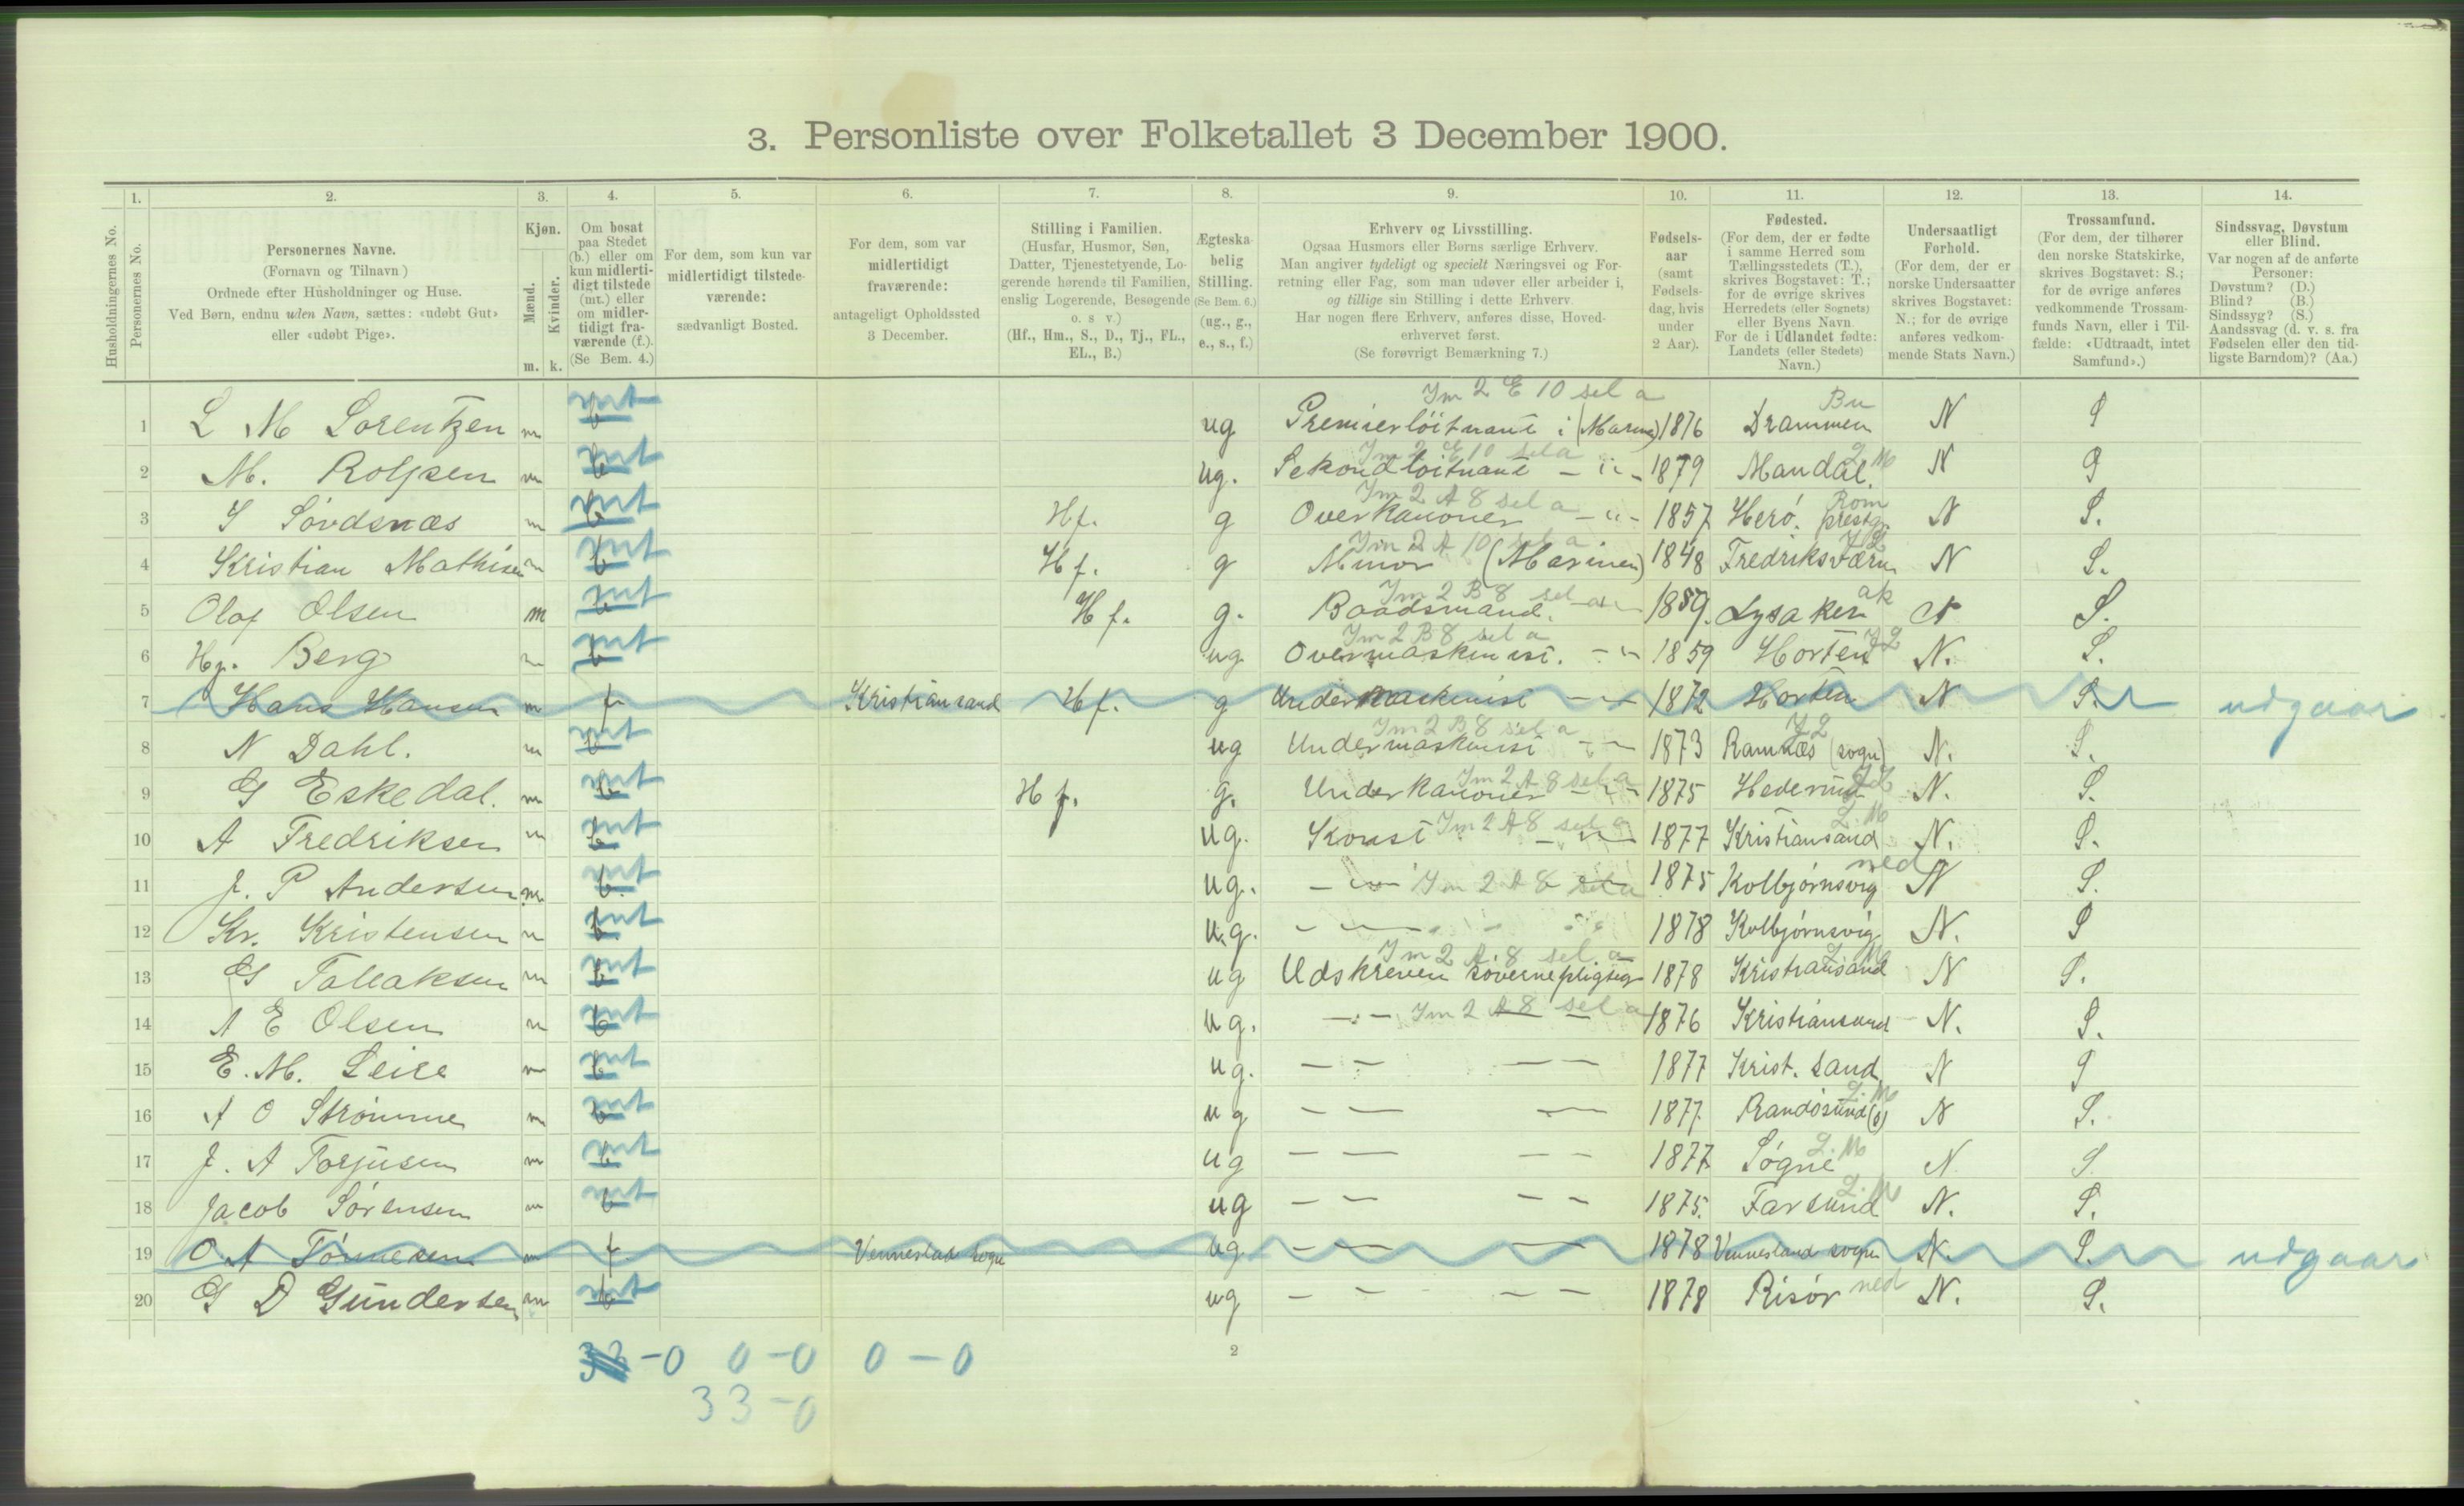 3. Personliste over Folketallet 3 December 1900.
1. 2. 3. 4. 5. 6. 7. 8. 9. 10. 11. 12. 13. 14.
Husholdningernes No.
Personernes No.
Personernes Navne.
(Fornavn og Tilnavn)
Ordnede efter Husholdninger og Huse.
Ved Børn, endnu uden Navn, sættes: «udøbt Gut»
eller «udøbt Pige».
Kjøn.
Mænd.
Kvinder.
m. k.
Om bosat
paa Stedet
(b.) eller om
kun midlerti-
digt tilstede
(mt.) eller
om midler-
tidigt fra-
værende (f.).
(Se Bem. 4.)
For dem, som kun var
midlertidigt tilstede-
værende:
sædvanligt Bosted.
For dem, som var
midlertidigt
fraværende:
antageligt Opholdssted
3 December.
Stilling i Familien.
(Husfar, Husmor, Søn,
Datter, Tjenestetyende, Lo-
gerende hørende til Familien,
enslig Logerende, Besøgende
o. s v.)
(Hf., Hm., S., D., Tj., FL.,
EL., B.)
Ægteska-
belig
Stilling.
(Se Bem. 6.)
(ug., g.,
e., s., f.)
Erhverv og Livsstilling.
Ogsaa Husmors eller Børns særlige Erhverv.
Man angiver tydeligt og specielt Næringsvei og For-
retning eller Fag, som man udøver eller arbeider i,
og tillige sin Stilling i dette Erhverv.
Har nogen flere Erhverv, anføres disse, Hoved-
erhvervet først.
(Se forøvrigt Bemærkning 7.)
Fødsels-
aar
(samt
Fødsels-
dag, hvis
under
2 Aar).
Fødested.
(For dem, der er fødte
i samme Herred som
Tællingsstedets (T.),
skrives Bogstavet: T.;
for de øvrige skrives
Herredets (eller Sognets)
eller Byens Navn.
For de i Udlandet fødte:
Landets (eller Stedets)
Navn.)
Undersaatligt
Forhold.
(For dem, der er
norske Undersaatter
skrives Bogstavet:
N.; for de øvrige
anføres vedkom-
mende Stats Navn.)
Trossamfund.
(For dem, der tilhører
den norske Statskirke,
skrives Bogstavet: S.;
for de øvrige anføres
vedkommende Trossam-
funds Navn, eller i Til-
fælde: «Udtraadt, intet
Samfund».)
Sindssvag, Døvstum
eller Blind.
Var nogen af de anførte
Personer:
Døvstum? (D.)
Blind? (B.)
Sindssyg? (S.)
Aandssvag (d. v. s. fra
Fødselen eller den tid-
ligste Barndom)? (Aa.)
Im 2 E 10 sel a Bu
1 L M Lorentzen m b mt ug Premierløitnant i (Marine) 1876 Drammen N S
Im 2 E 10 sel a L M
2 M. Rolfsen m b mt ug. Sekondløitnant - " - 1879 Mandal. N S
Im 2 A 8 sel a Rom
3 S Søvdsnæs m b mt Hf. g Overkanoner - " - 1857 Herø. prestg. N S.
Im 2 A 10 sel a
4 Kristian Mathisen m b mt Hf. g Minør (Marinen) 1848 Fredriksværn N S.
Im 2 B 8 sel a ak
5 Olaf Olsen m b mt Hf. g. Baadsmand. 1859. Lysaker N S.
Im 2 B 8 sel a JL
6 Hj. Berg m b mt ug Overmaskinist. - " 1859 Horten N. S.
7 Hans Hansen m f Kristiansand Hf. g Undermaskinist - " - 1872 Horten N S. udgaar
Im 2 B 8 sel a JL
8 N Dahl. m b mt ug Undermaskinist - " - 1873 Ramnæs (sogn) N. S.
Im 2 A 8 sel a
9 G Eskedal. m b mt Hf. g. Underkanoner - " - 1875 N. S.
Im 2 A 8 sel a L. M
10 A Fredriksen m b mt ug. Konst - " - 1877 Kristiansand N. S.
Im 2 A 8 sel a ned
11 J. P Andersen m b. mt ug. - " - 1875 Kolbjørnsvig N S.
12 Kr. Kristensen m b mt u.g. - - 1878 Kolbjørnsvig N. S
Im 2 A 8 sel a L M
13 G Tallaksen m b mt ug Udskreven søvernepligtig 1878 Kristiansand N S.
Im 2 A 8 sel a
14 A E Olsen m b mt ug. - - 1876 Kristiansund N. S.
15 E. M. Leire m b mt ug. - - - - 1877 Krist. sand N S
L. M
16 A O Strømme m b mt ug - - - 1877. Randøsund (s) N S.
L. M
17 J. A Torjusen m b mt ug - - - - 1877 Søgne N S
L. M
18 Jacob Sørensen m b mt ug - - - - 1875. Farsund N. S.
19 O. A Tønnesen m f Vennesland sogn ug - - - 1878 Vennesland sogn N. S. udgaar
20 G D Gundersen m b mt ug - - - - 1878 Risør ned N. S.
-0 0-0 0-0
2
33-0